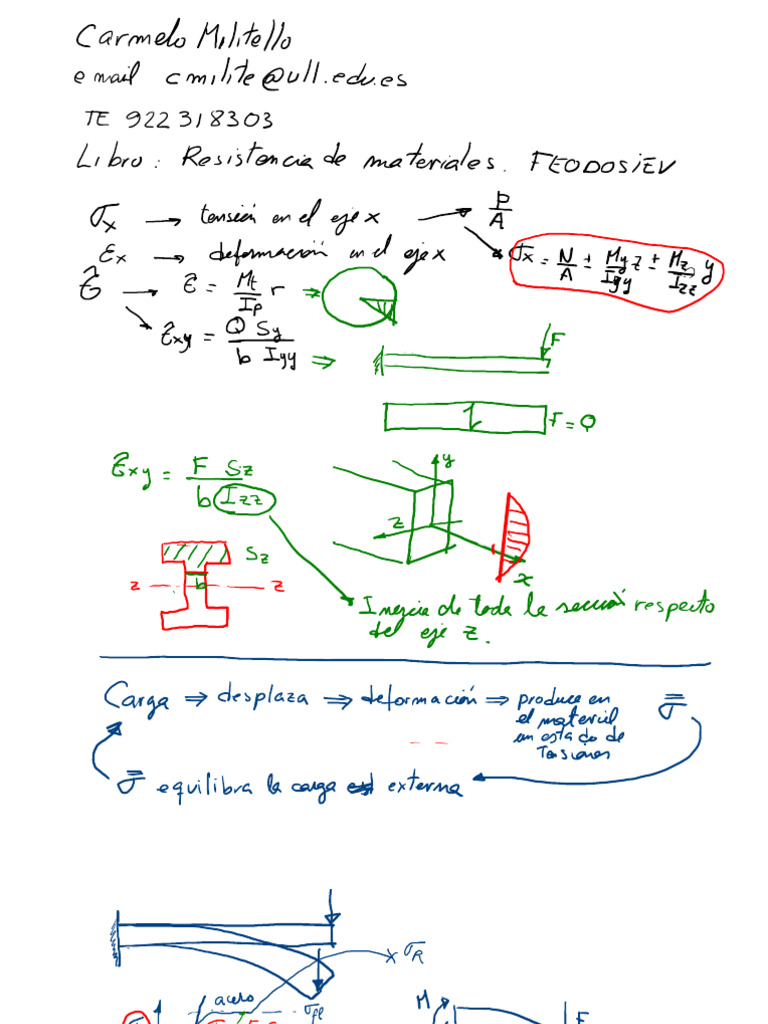 Carmelo Militello
email cmilite@ull.edu.es
TE 922 318303
Libro: Resistencia de materiales. FEODOSIEV
σx → tensión en el eje x → P/A
σx = N/A ± My/Iyy z ± Mz/Izz y
εx → deformación en el eje x
τ → τ = Mt/Ip r ⇒
τxy = Q Sy / b Iyy ⇒
F
F = Q
τxy = F Sz / b Izz
y
z
x
Sz
b
z z
Inercia de toda la sección respecto
del eje z.
Carga ⇒ desplaza ⇒ deformación ⇒ produce en
el material
un estado de
tensiones
σ
σ equilibra la carga externa
σR
acero
σfl
M
F